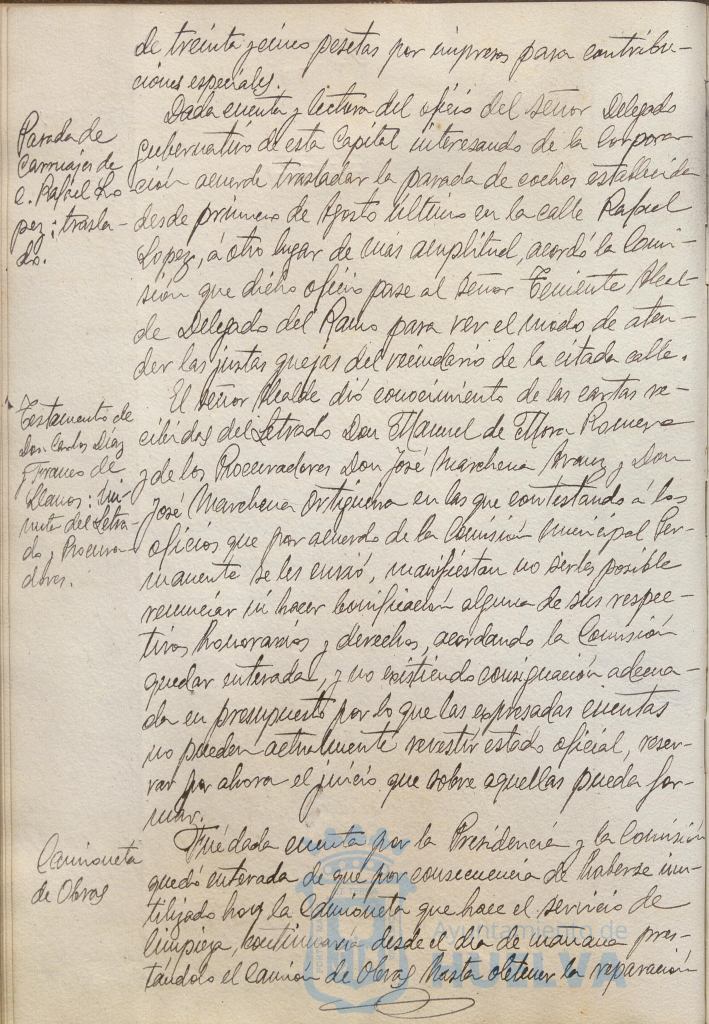 de treinta y cinco pesetas por impresos para contribu-
ciones especiales.
Parada de
Carruajes de
c. Rafael Ló
pez; trasla-
do.
Dada cuenta y lectura del oficio del señor Delegado
gubernativo de esta Capital interesando de la Corpora-
ción acuerde trasladar la parada de coches establecida
desde primero de Agosto último en la calle Rafael
Lopez, á otro lugar de más amplitud, acordó la Comi-
sión que dicho oficio pase al señor Teniente Alcal-
de Delegado del Ramo para ver el modo de aten-
der las justas quejas del vecindario de la citada calle.
Testamento de
Don Carlos Diaz
y Franco de
Llanos: mi-
nuta del Letra-
do y Procura-
dores.
El señor Alcalde dió conocimiento de las cartas re-
cibidas del Letrado Don Manuel de Mora Romero
y de los Procuradores Don José Marchena Aranz y Don
José Marchena Ortiguera en las que contestando á los
oficios que por acuerdo de la Comisión Municipal Per-
manente se les envió, manifiestan no serles posible
renunciar ni hacer bonificación alguna de sus respec-
tivos honorarios y derechos, acordando la Comisión
quedar enterada, y no existiendo consignación adecua-
da en presupuesto por lo que las expresadas cuentas
no pueden actualmente revestir estado oficial, reser-
var por ahora el juicio que sobre aquellas pueda for-
mar.
Camioneta
de Obras
Fué dada cuenta por la Presidencia y la Comisión
quedó enterada de que por consecuencia de haberse inu-
tilizado hoy la Camioneta que hace el servicio de
limpieza, continuaría desde el día de mañana pres-
tándolo el Camión de Obras hasta obtener la reparación
Ayuntamiento de
HUELVA